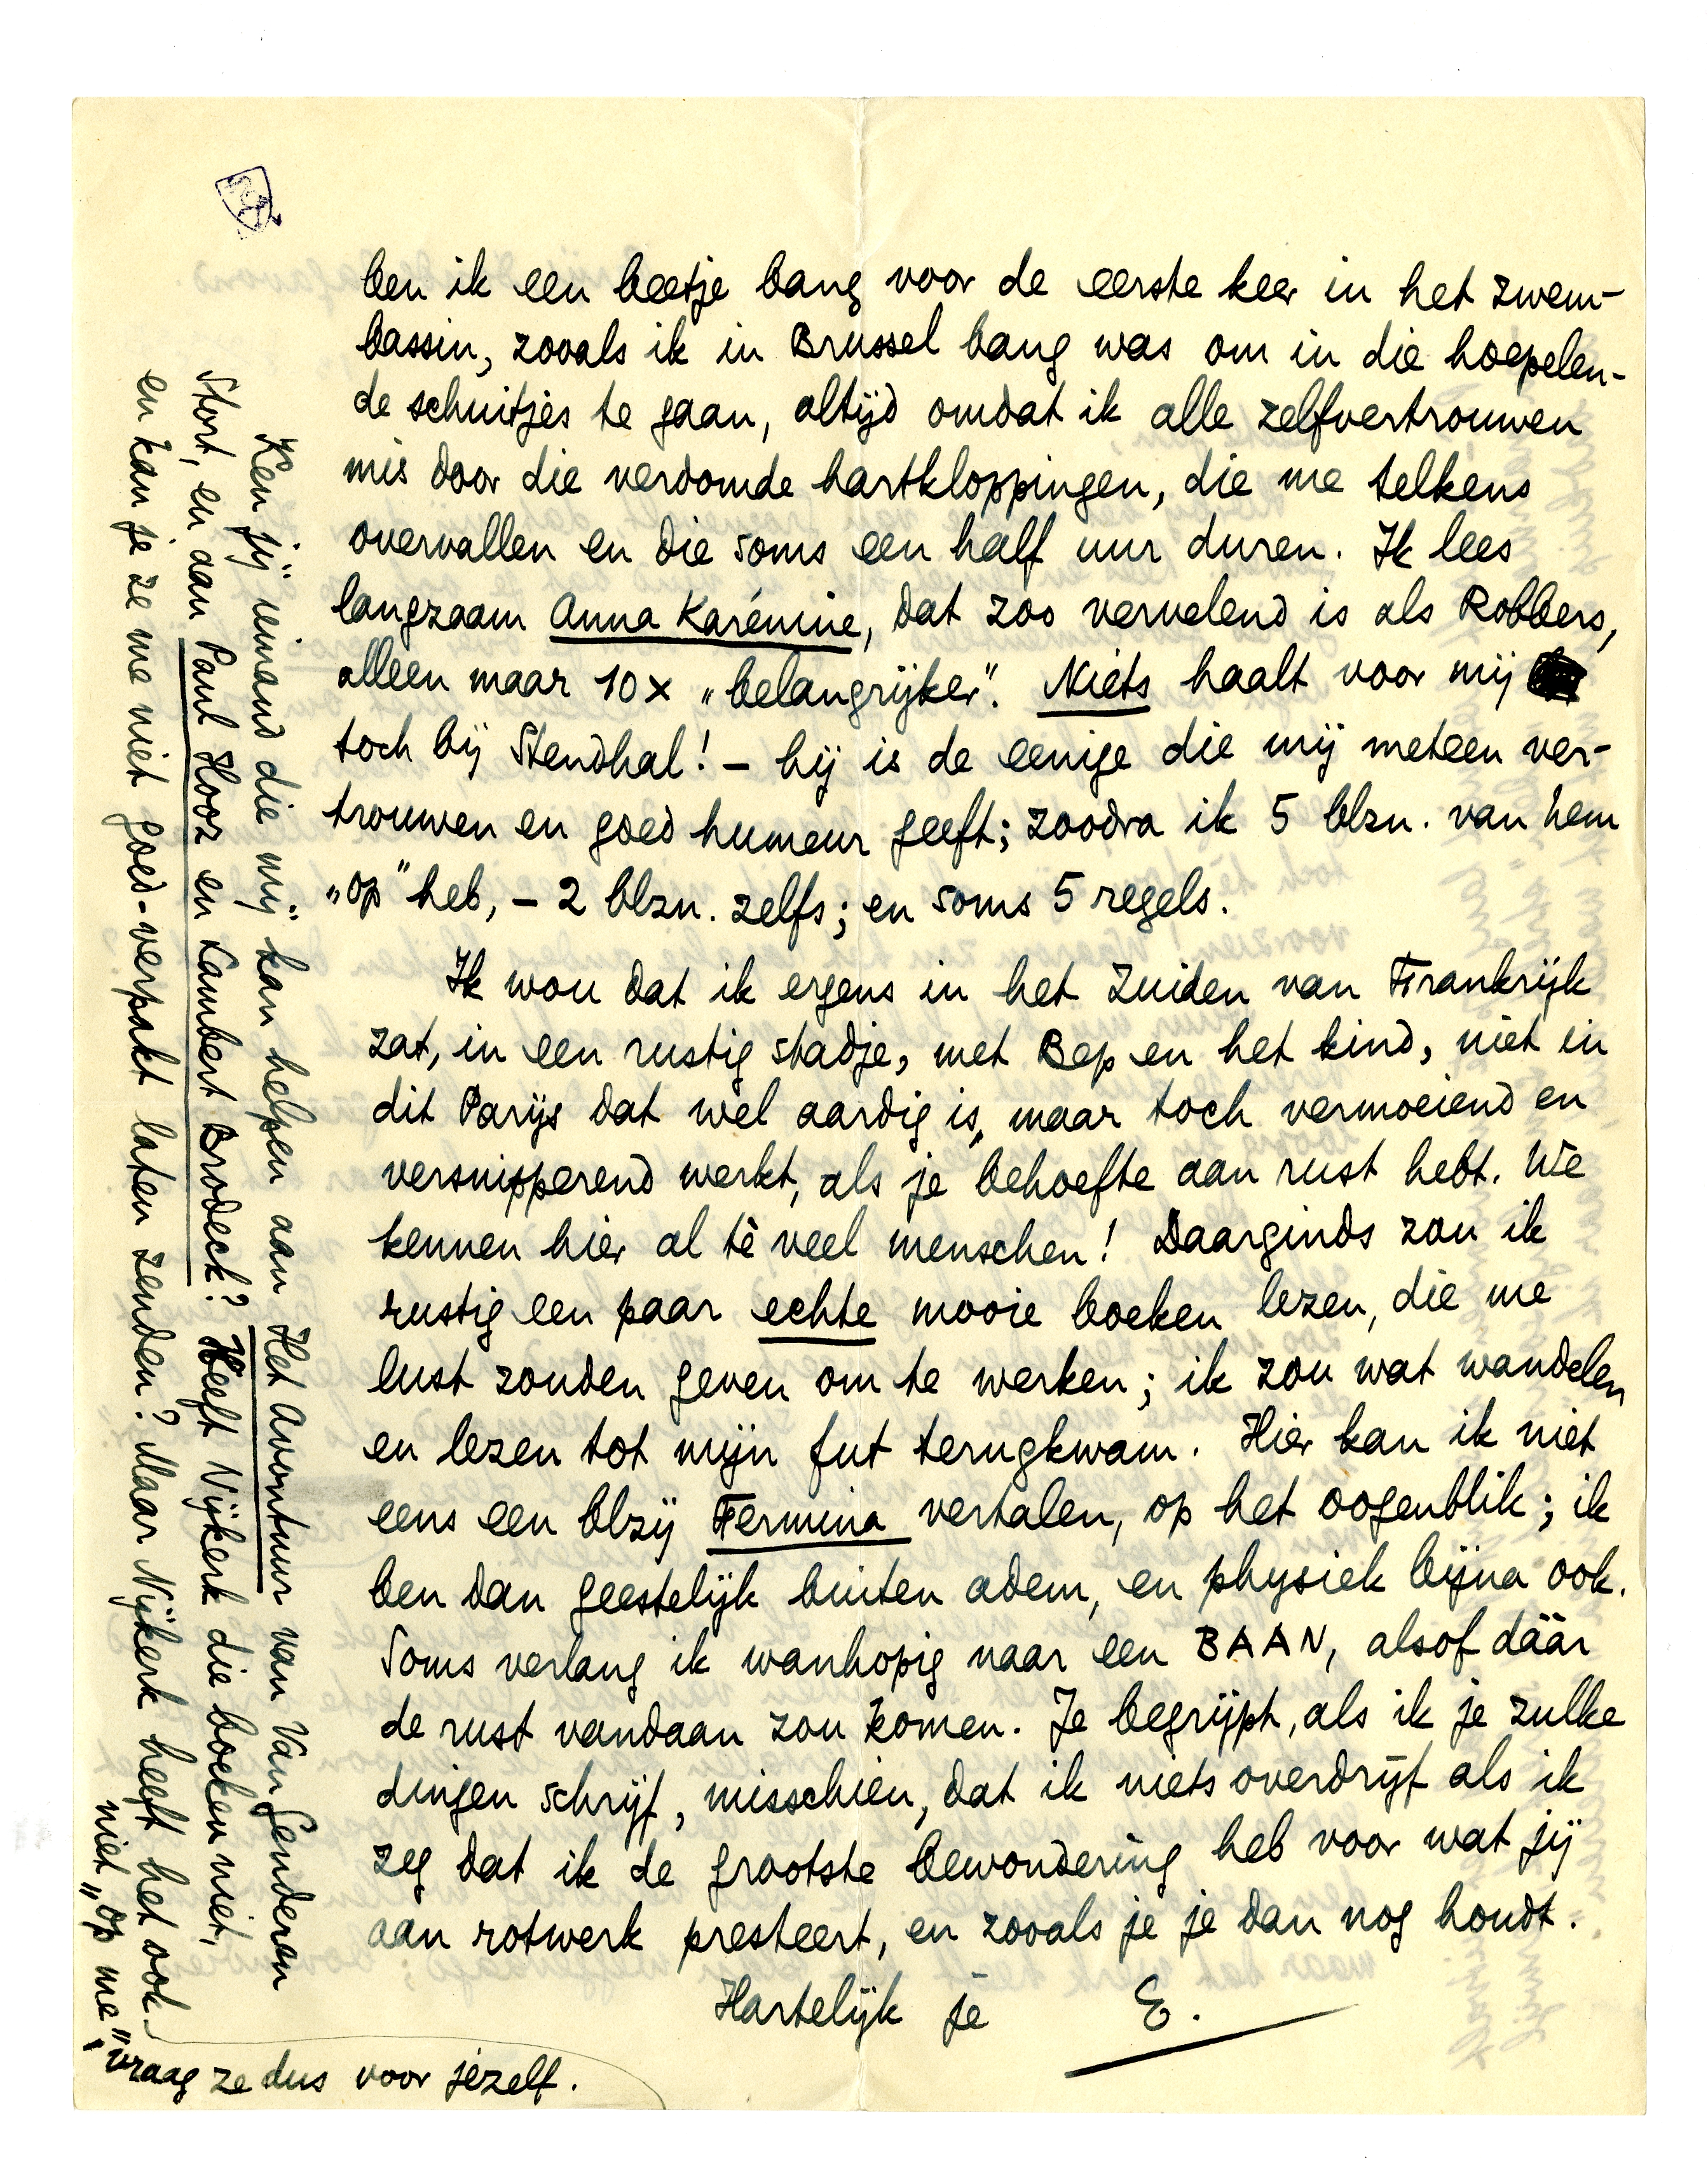 ben ik een beetje bang voor de eerste keer in het zwem-
bassin, zooals ik in Brussel bang was om in die hoepelen-
de schuitjes te gaan, altijd omdat ik alle zelfvertrouwen
mis door die verdomde hartkloppingen, die me telkens
overvallen en die soms een half uur duren. Ik lees
langzaam Anna Karénine, dat zoo vervelend is als Robbers,
alleen maar 10x „belangrijker”. Niets haalt voor mij
toch bij Stendhal! – hij is de eenige die mij meteen ver-
trouwen en goed humeur geeft; zoodra ik 5 blzn. van hem
„op” heb, – 2 blzn. zelfs; en soms 5 regels.
Ik wou dat ik ergens in het Zuiden van Frankrijk
zat, in een rustig stadje, met Bep en het kind, niet in
dit Parijs dat wel aardig is, maar toch vermoeiend en
versnipperend werkt, als je behoefte aan rust hebt. We
kennen hier al tè veel menschen! Daarginds zou ik
rustig een paar echte mooie boeken lezen, die me
lust zouden geven om te werken; ik zou wat wandelen
en lezen tot mijn fut terugkwam. Hier kan ik niet
eens een blzij Fermina vertalen, op het oogenblik; ik
ben dan geestelijk buiten adem, en physiek bijna ook.
Soms verlang ik wanhopig naar een BAAN, alsof dáár
de rust vandaan zou komen. Je begrijpt, als ik je zulke
dingen schrijf, misschien, dat ik niets overdrijf als ik
zeg dat ik de grootste bewondering heb voor wat jij
aan rotwerk presteert, en zooals je je dan nog houdt.
Hartelijk je E.
Ken jij iemand die mij kan helpen aan Het Avontuur van Van Genderen
Stort, en aan Paul Hooz en Lambert Brodeck? Heeft Nijkerk die boeken niet,
en kan je ze me niet goed-verpakt laten zenden? Maar Nijkerk heeft het ook
niet „op me”,
vraag ze dus voor jezelf.